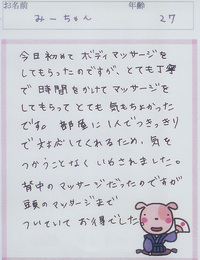 お名前 年齢
みーちゃん 27
今日初めてボディマッサージを
してもらったのですが、とても丁寧
で時間をかけてマッサージを
してもらってとても気もちよかった
です。部屋に1人でつきっきり
で対応してくれるため、気を
つかうことなくいやされました。
背中のマッサージだったのですが
頭のマッサージまで
ついていてお得でした